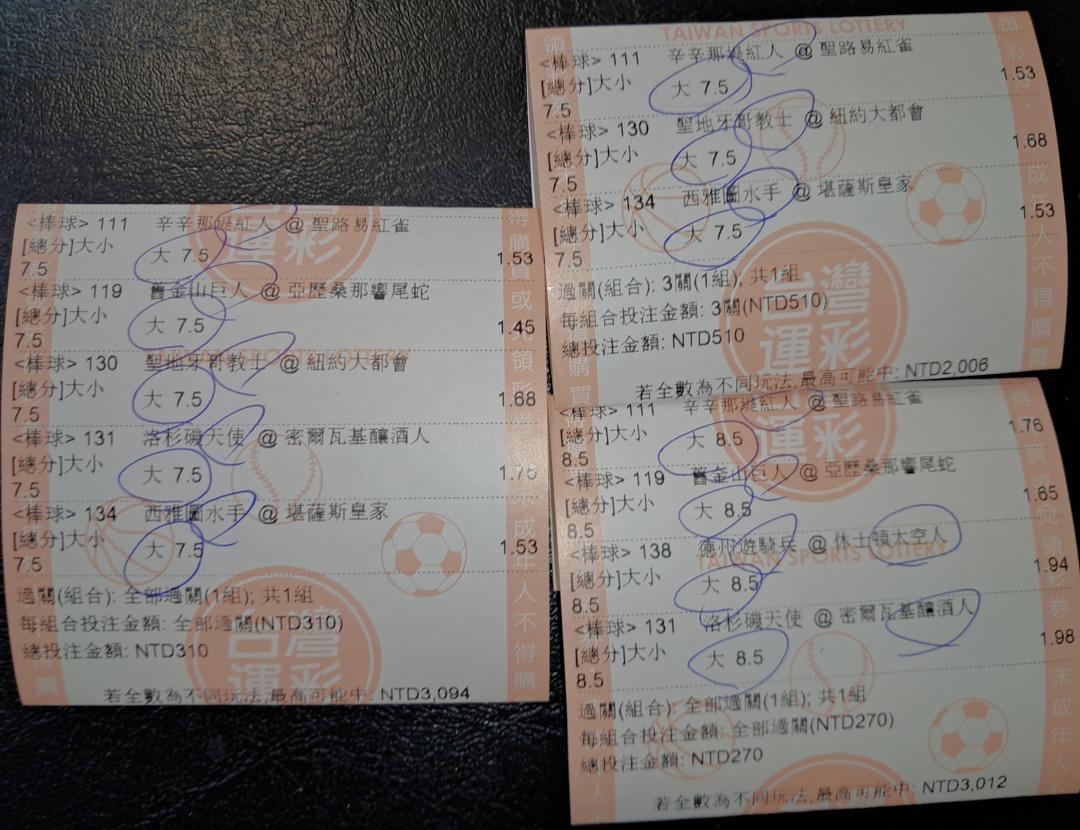 <棒球> 111 辛辛那堤紅人 @ 聖路易紅雀
[總分]大小 大 7.5 1.53
7.5
<棒球> 119 舊金山巨人 @ 亞歷桑那響尾蛇
[總分]大小 大 7.5 1.45
7.5
<棒球> 130 聖地牙哥教士 @ 紐約大都會
[總分]大小 大 7.5 1.68
7.5
<棒球> 131 洛杉磯天使 @ 密爾瓦基釀酒人
[總分]大小 大 7.5 1.76
7.5
<棒球> 134 西雅圖水手 @ 堪薩斯皇家
[總分]大小 大 7.5 1.53
7.5
過關(組合): 全部過關(1組); 共1組
每組合投注金額: 全部過關(NTD310)
總投注金額: NTD310
若全數為不同玩法,最高可能中: NTD3,094
台灣
運彩
TAIWAN SPORTS LOTTERY
<棒球> 111 辛辛那堤紅人 @ 聖路易紅雀
[總分]大小 大 7.5 1.53
7.5
<棒球> 130 聖地牙哥教士 @ 紐約大都會
[總分]大小 大 7.5 1.68
7.5
<棒球> 134 西雅圖水手 @ 堪薩斯皇家
[總分]大小 大 7.5 1.53
7.5
過關(組合): 3關(1組); 共1組
每組合投注金額: 3關(NTD510)
總投注金額: NTD510
若全數為不同玩法,最高可能中: NTD2,006
台灣
運彩
<棒球> 111 辛辛那堤紅人 @ 聖路易紅雀
[總分]大小 大 8.5 1.76
8.5
<棒球> 119 舊金山巨人 @ 亞歷桑那響尾蛇
[總分]大小 大 8.5 1.65
8.5
<棒球> 138 德州遊騎兵 @ 休士頓太空人
[總分]大小 大 8.5 1.94
8.5
<棒球> 131 洛杉磯天使 @ 密爾瓦基釀酒人
[總分]大小 大 8.5 1.98
8.5
過關(組合): 全部過關(1組); 共1組
每組合投注金額: 全部過關(NTD270)
總投注金額: NTD270
若全數為不同玩法,最高可能中: NTD3,012